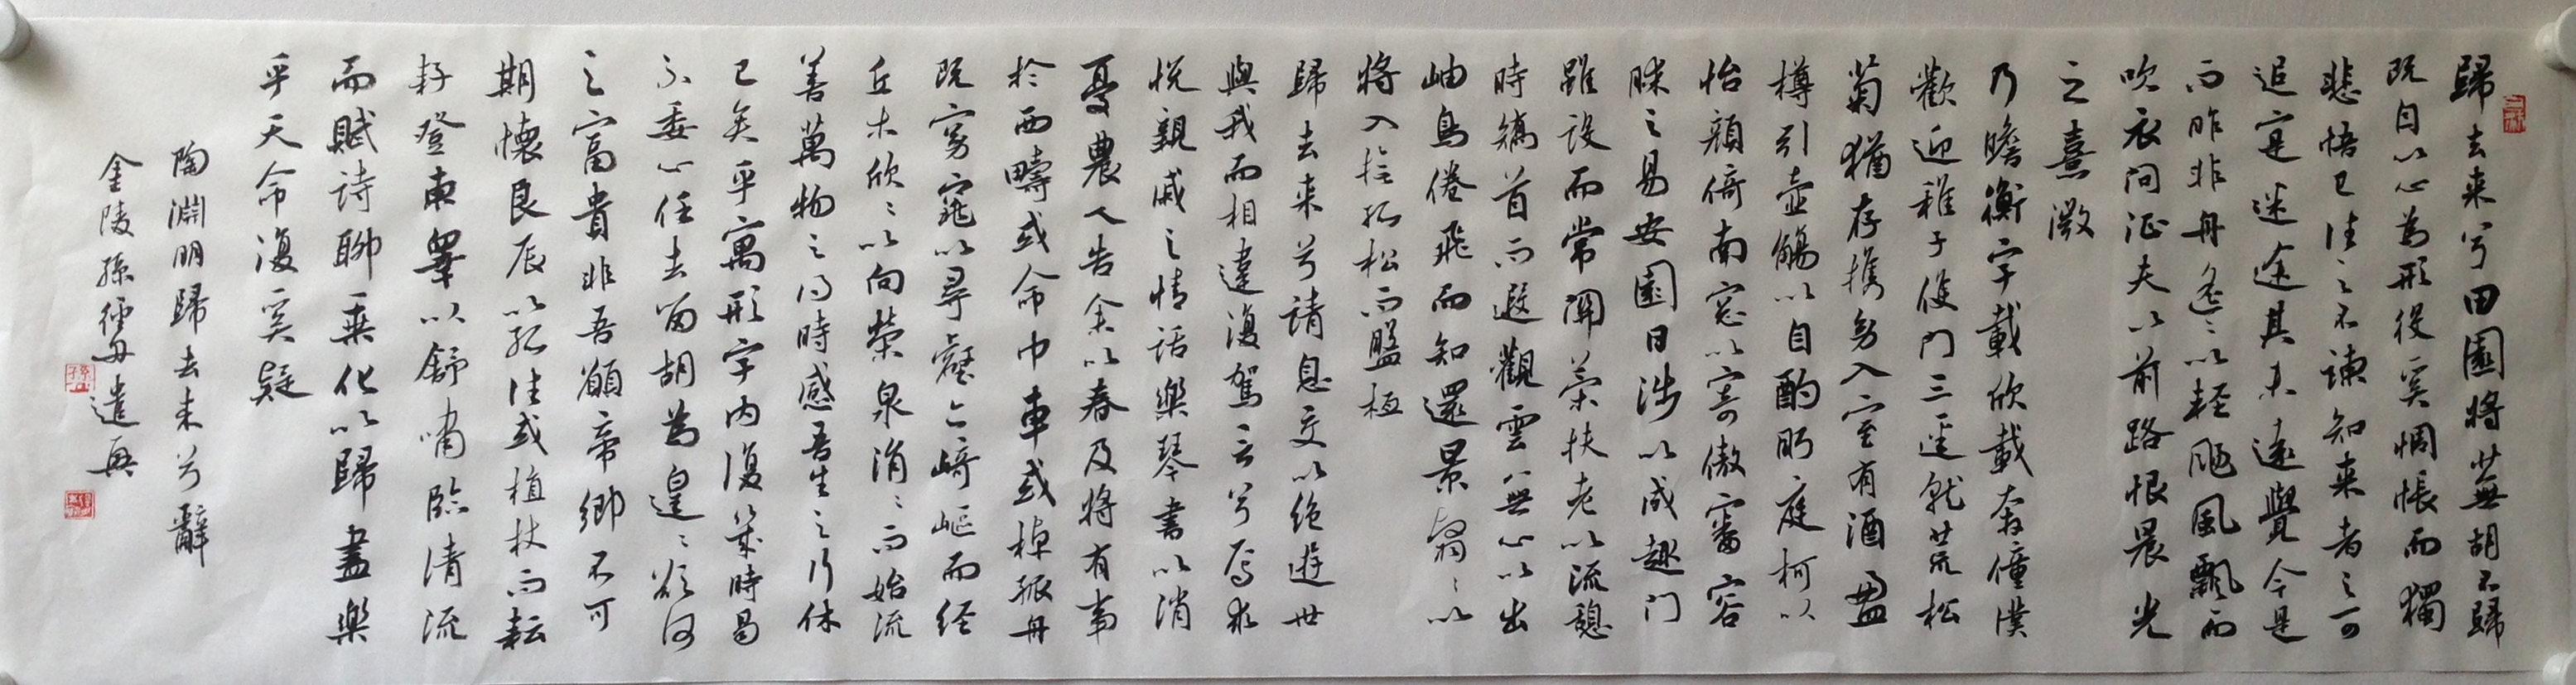 歸去来兮田園將蕪胡不歸
既自以心為形役奚惆悵而獨
悲悟已往之不諫知来者之可
追寔迷途其未遠覺今是
而昨非舟遙〻以輕颺風飄而
吹衣问征夫以前路恨晨光
之熹微
乃瞻衡宇載欣載奔僮僕
歡迎稚子候门三逕就荒松
菊猶存攜幼入室有酒盈
樽引壺觴以自酌眄庭柯以
怡顏倚南窓以寄傲審容
膝之易安園日涉以成趣门
雖設而常關策扶老以流憩
時矯首而遐觀雲無心以出
岫鳥倦飛而知還景翳〻以
將入撫孤松而盤桓
歸去来兮請息交以絶遊世
與我而相違復駕言兮焉求
悦親戚之情話樂琴書以消
憂農人告余以春及將有事
於西疇或命巾車或棹孤舟
既窈窕以尋壑亦崎嶇而経
丘木欣〻以向榮泉涓〻而始流
善萬物之得時感吾生之行休
已矣乎寓形宇内復幾時曷
不委心任去留胡為遑〻欲何
之富貴非吾願帝鄉不可
期懷良辰以孤往或植杖而耘
耔登東皋以舒嘯臨清流
而賦詩聊乘化以歸盡樂
乎天命復奚疑
陶淵明歸去来兮辭
金陵孫